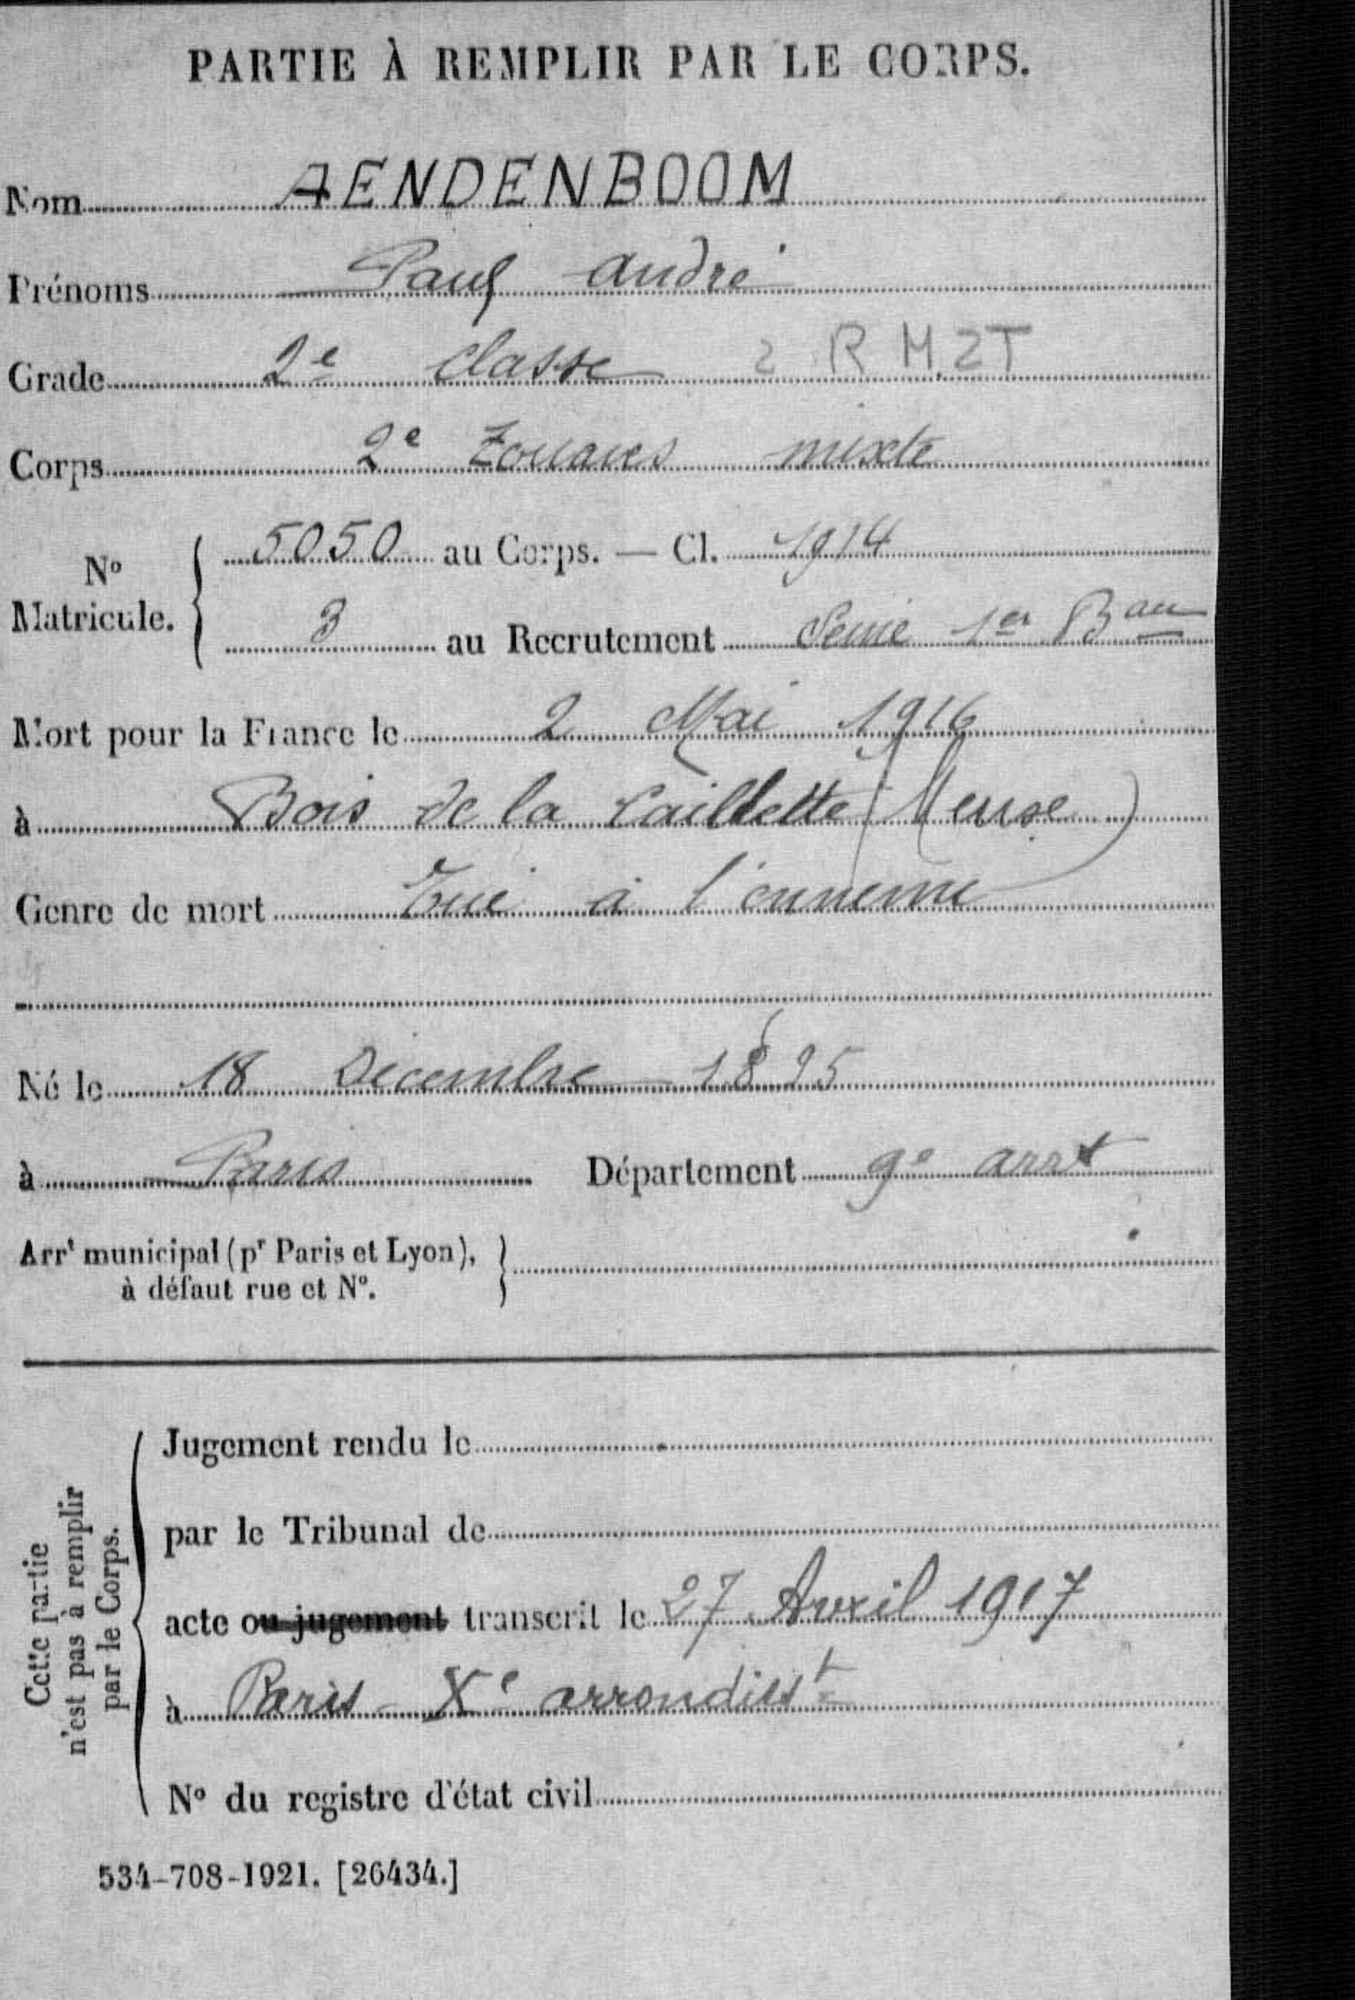 PARTIE À REMPLIR PAR LE CORPS.
Nom AENDENBOOM
Prénoms Paul André
Grade 2e classe 2 R M.Z T
Corps 2e Zouaves mixte
No Matricule. { 5050 au Corps. — Cl. 1914
3 au Recrutement Seine 1er Bau
Mort pour la France le 2 Mai 1916
à Bois de la Caillette (Meuse)
Genre de mort Tué à l'ennemi
Né le 18 Décembre 1895
à Paris Département 9e arrt
Arrt municipal (pr Paris et Lyon), à défaut rue et No. }
Cette partie n'est pas à remplir par le Corps. {
Jugement rendu le
par le Tribunal de
acte ou jugement transcrit le 27 Avril 1917
à Paris - Xe arrondisst
No du registre d'état civil
534-708-1921. [26434.]